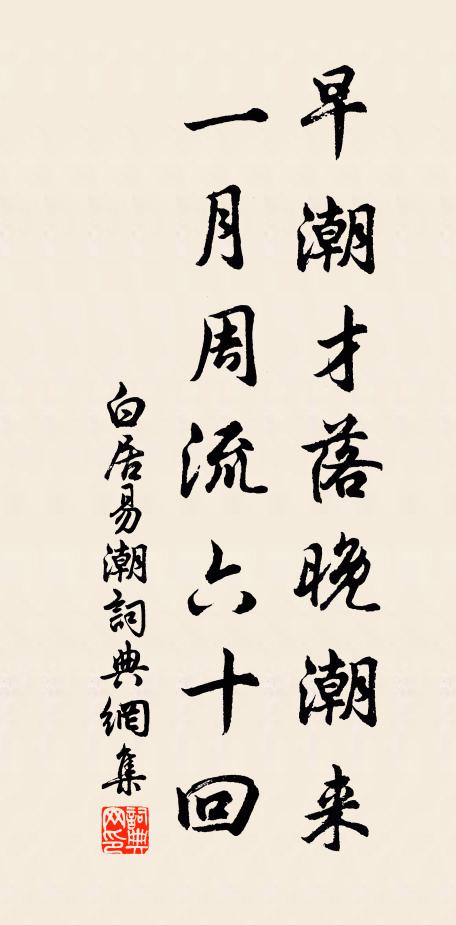 早潮才落晚潮来
一月周流六十回
白居易潮詞典網集
詞典網印